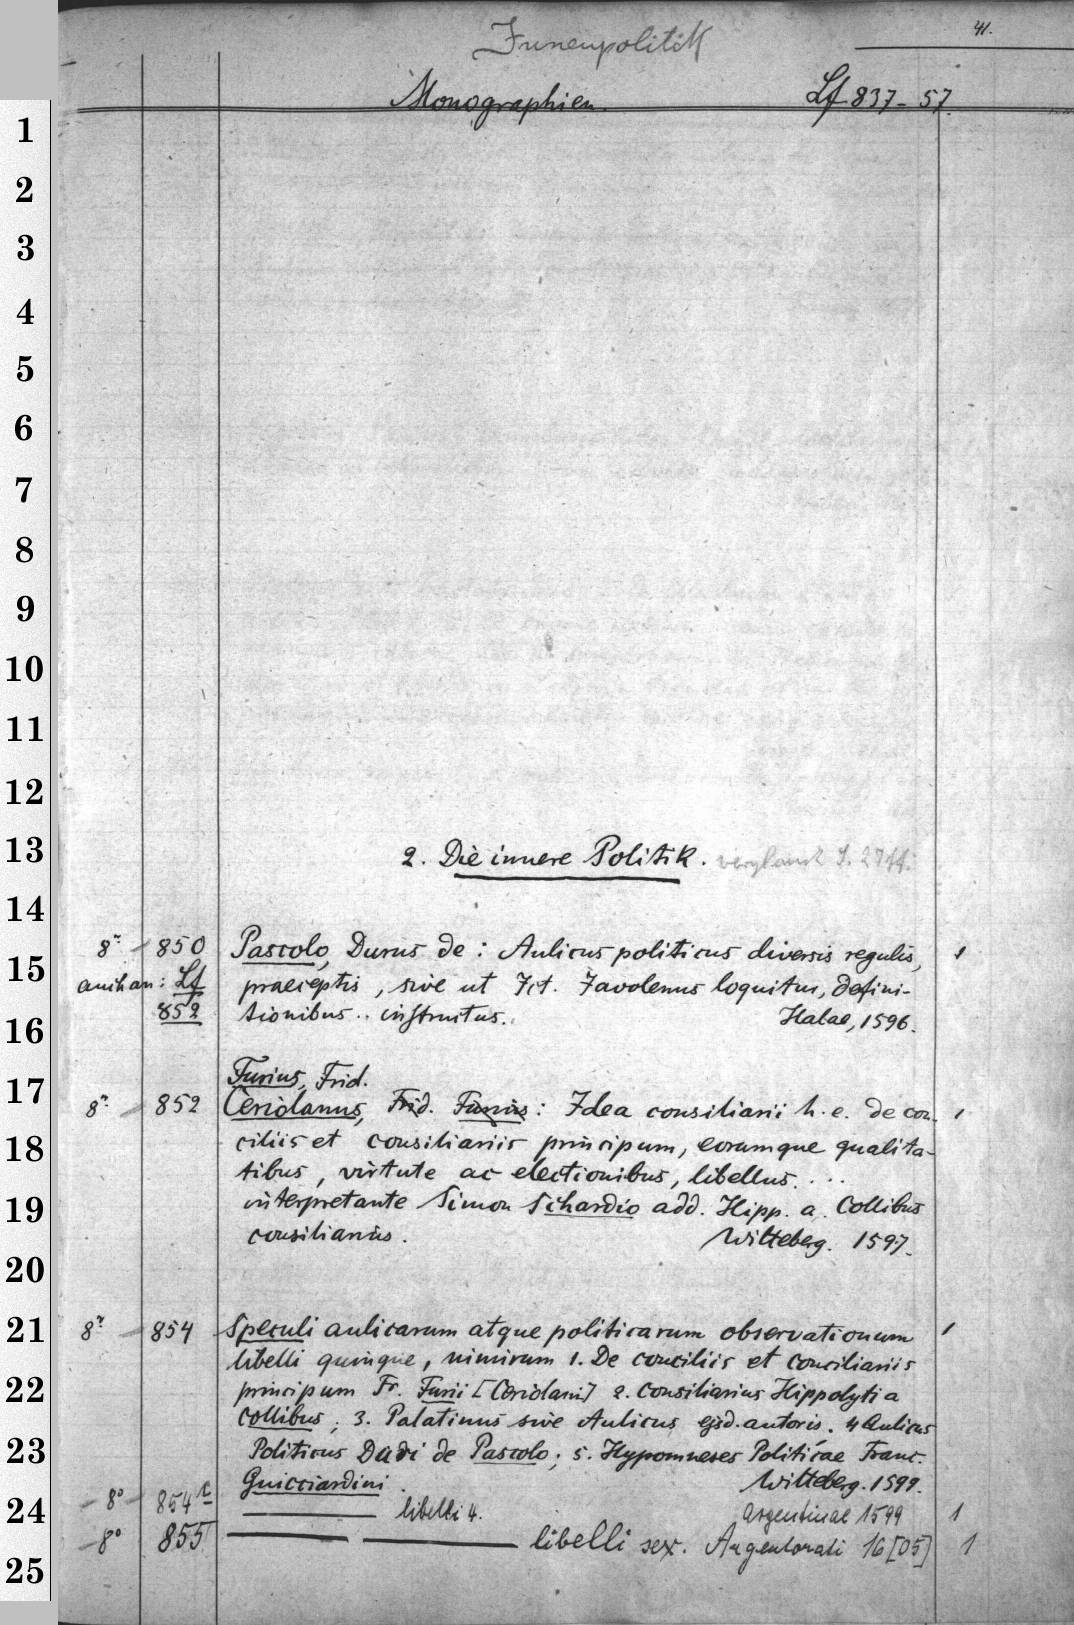 41.
Innenpolitik
Monographien. Lf 837-57.
1
2
3
4
5
6
7
8
9
10
11
12
13
2. Die innere Politik. vergl. auch S. 27 ff.
14
8° 850 Pascolo, Durus de: Aulicus politicus diversis regulis, 1
15
Lf praeceptis, sive ut Ict. Iavolenus loquitur, defini-
852 tionibus .. instructus. Halae, 1596.
16
Furius, Frid.
17
8° 852 Ceriolanus, Frid. Furius: Idea consiliarii h. e. de con- 1
ciliis et consiliariis principum, eorumque qualita-
18
tibus, virtute ac electionibus, libellus. ...
interpretante Simon Sihardio add. Hipp. a. Collibus
19
consiliarius. Witteberg. 1597.
20
21
8° 854 Speculi aulicarum atque politicarum observationum 1
libelli quinque, nimirum 1. De conciliis et conciliariis
22
principum Fr. Furii [Ceriolani] 2. Consiliarius Hippolyti a
Collibus; 3. Palatinus sive Aulicus ejsd. autoris. 4 Aulicus
23
Politicus Duri de Pascolo; 5. Hypomneses Politicae Franc.
Guicciardini. Witteberg. 1599.
24
8° 854 libelli 4. Argentinae 1599 1
8° 855 libelli sex. Argentorati 16[05] 1
25